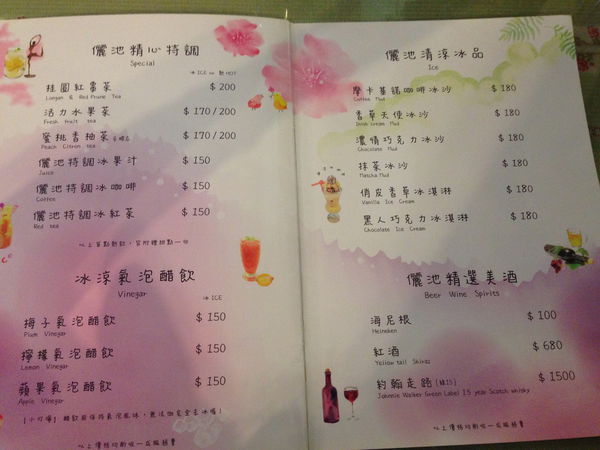 儷池精心特調
Special
冰 ICE or 熱 HOT
桂圓紅棗茶 $ 200
Longan & Red Prune Tea
活力水果茶 $ 170 / 200
Fresh fruit tea
蜜桃香柚茶 $ 170 / 200
Peach Citron tea
儷池特調冰果汁 $ 150
Juice
儷池特調冰咖啡 $ 150
Coffee
儷池特調冰紅茶 $ 150
Red tea
冰涼氣泡醋飲
Vinegar
冰 ICE
梅子氣泡醋飲 $ 150
Plum Vinegar
檸檬氣泡醋飲 $ 150
Lemon Vinegar
蘋果氣泡醋飲 $ 150
Apple Vinegar
以上價格均酌收一成服務費
儷池清涼冰品
Ice
摩卡蕃諾咖啡冰沙 $ 180
Coffee Mud
香草天使冰沙 $ 180
Irish cream Mud
濃情巧克力冰沙 $ 180
Chocolate Mud
抹茶冰沙 $ 180
Matcha Mud
俏皮香草冰淇淋 $ 180
Vanilla Ice Cream
黑人巧克力冰淇淋 $ 180
Chocolate Ice Cream
儷池精選美酒
Beer Wine Spirits
海尼根 $ 100
Heineken
紅酒 $ 680
Yellow tail Shiraz
約翰走路 (綠15) $ 1500
Johnnie Walker Green Label 15 year Scotch whisky
以上價格均酌收一成服務費